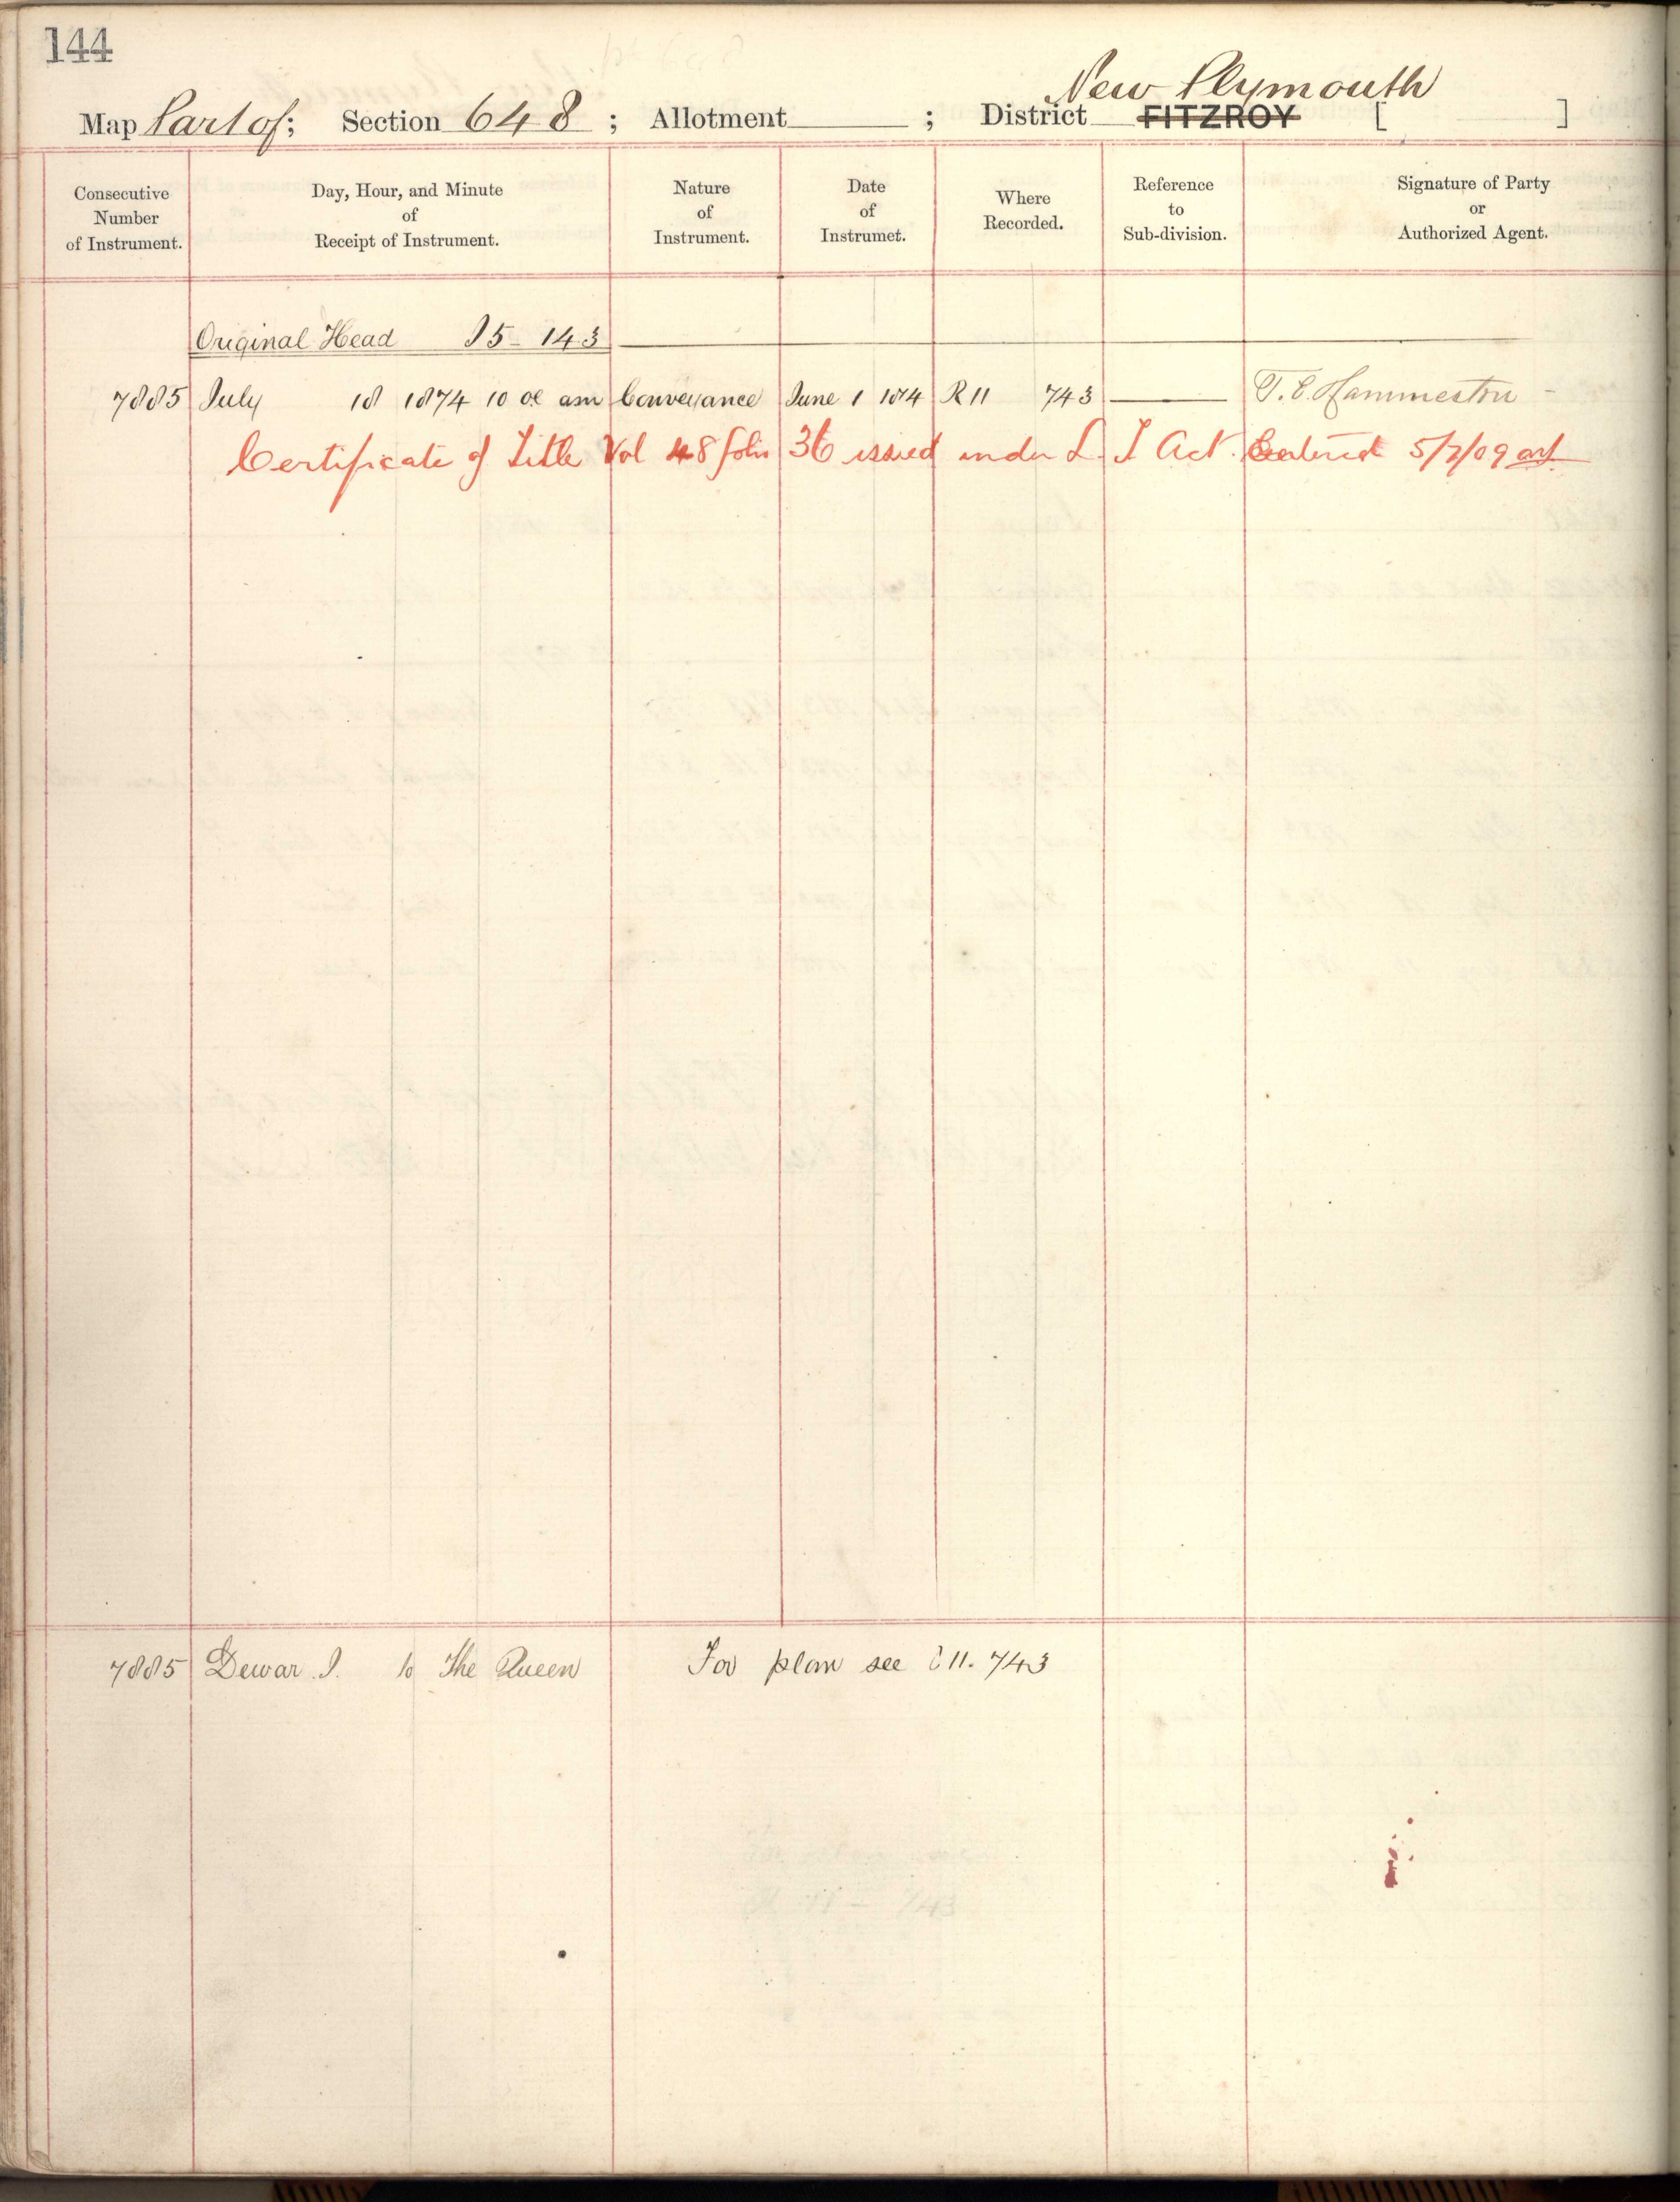 144
New Plymouth
Map Part of; Section 648 ; Allotment ; District FITZROY [ ]
Consecutive Number of Instrument.
Day, Hour, and Minute of Receipt of Instrument.
Nature of Instrument.
Date of Instrumet.
Where Recorded.
Reference to Sub-division.
Signature of Party or Authorized Agent.
Original Head I5 - 143
7885 July 18 1874 10 oc am Conveyance June 1 1874 R11 743 T. E. Hammerton
Certificate of Title Vol 48 folio 36 issued under L. T Act. Entered 5/2/09
7885 Dewar J. to The Queen For plan see 11. 743